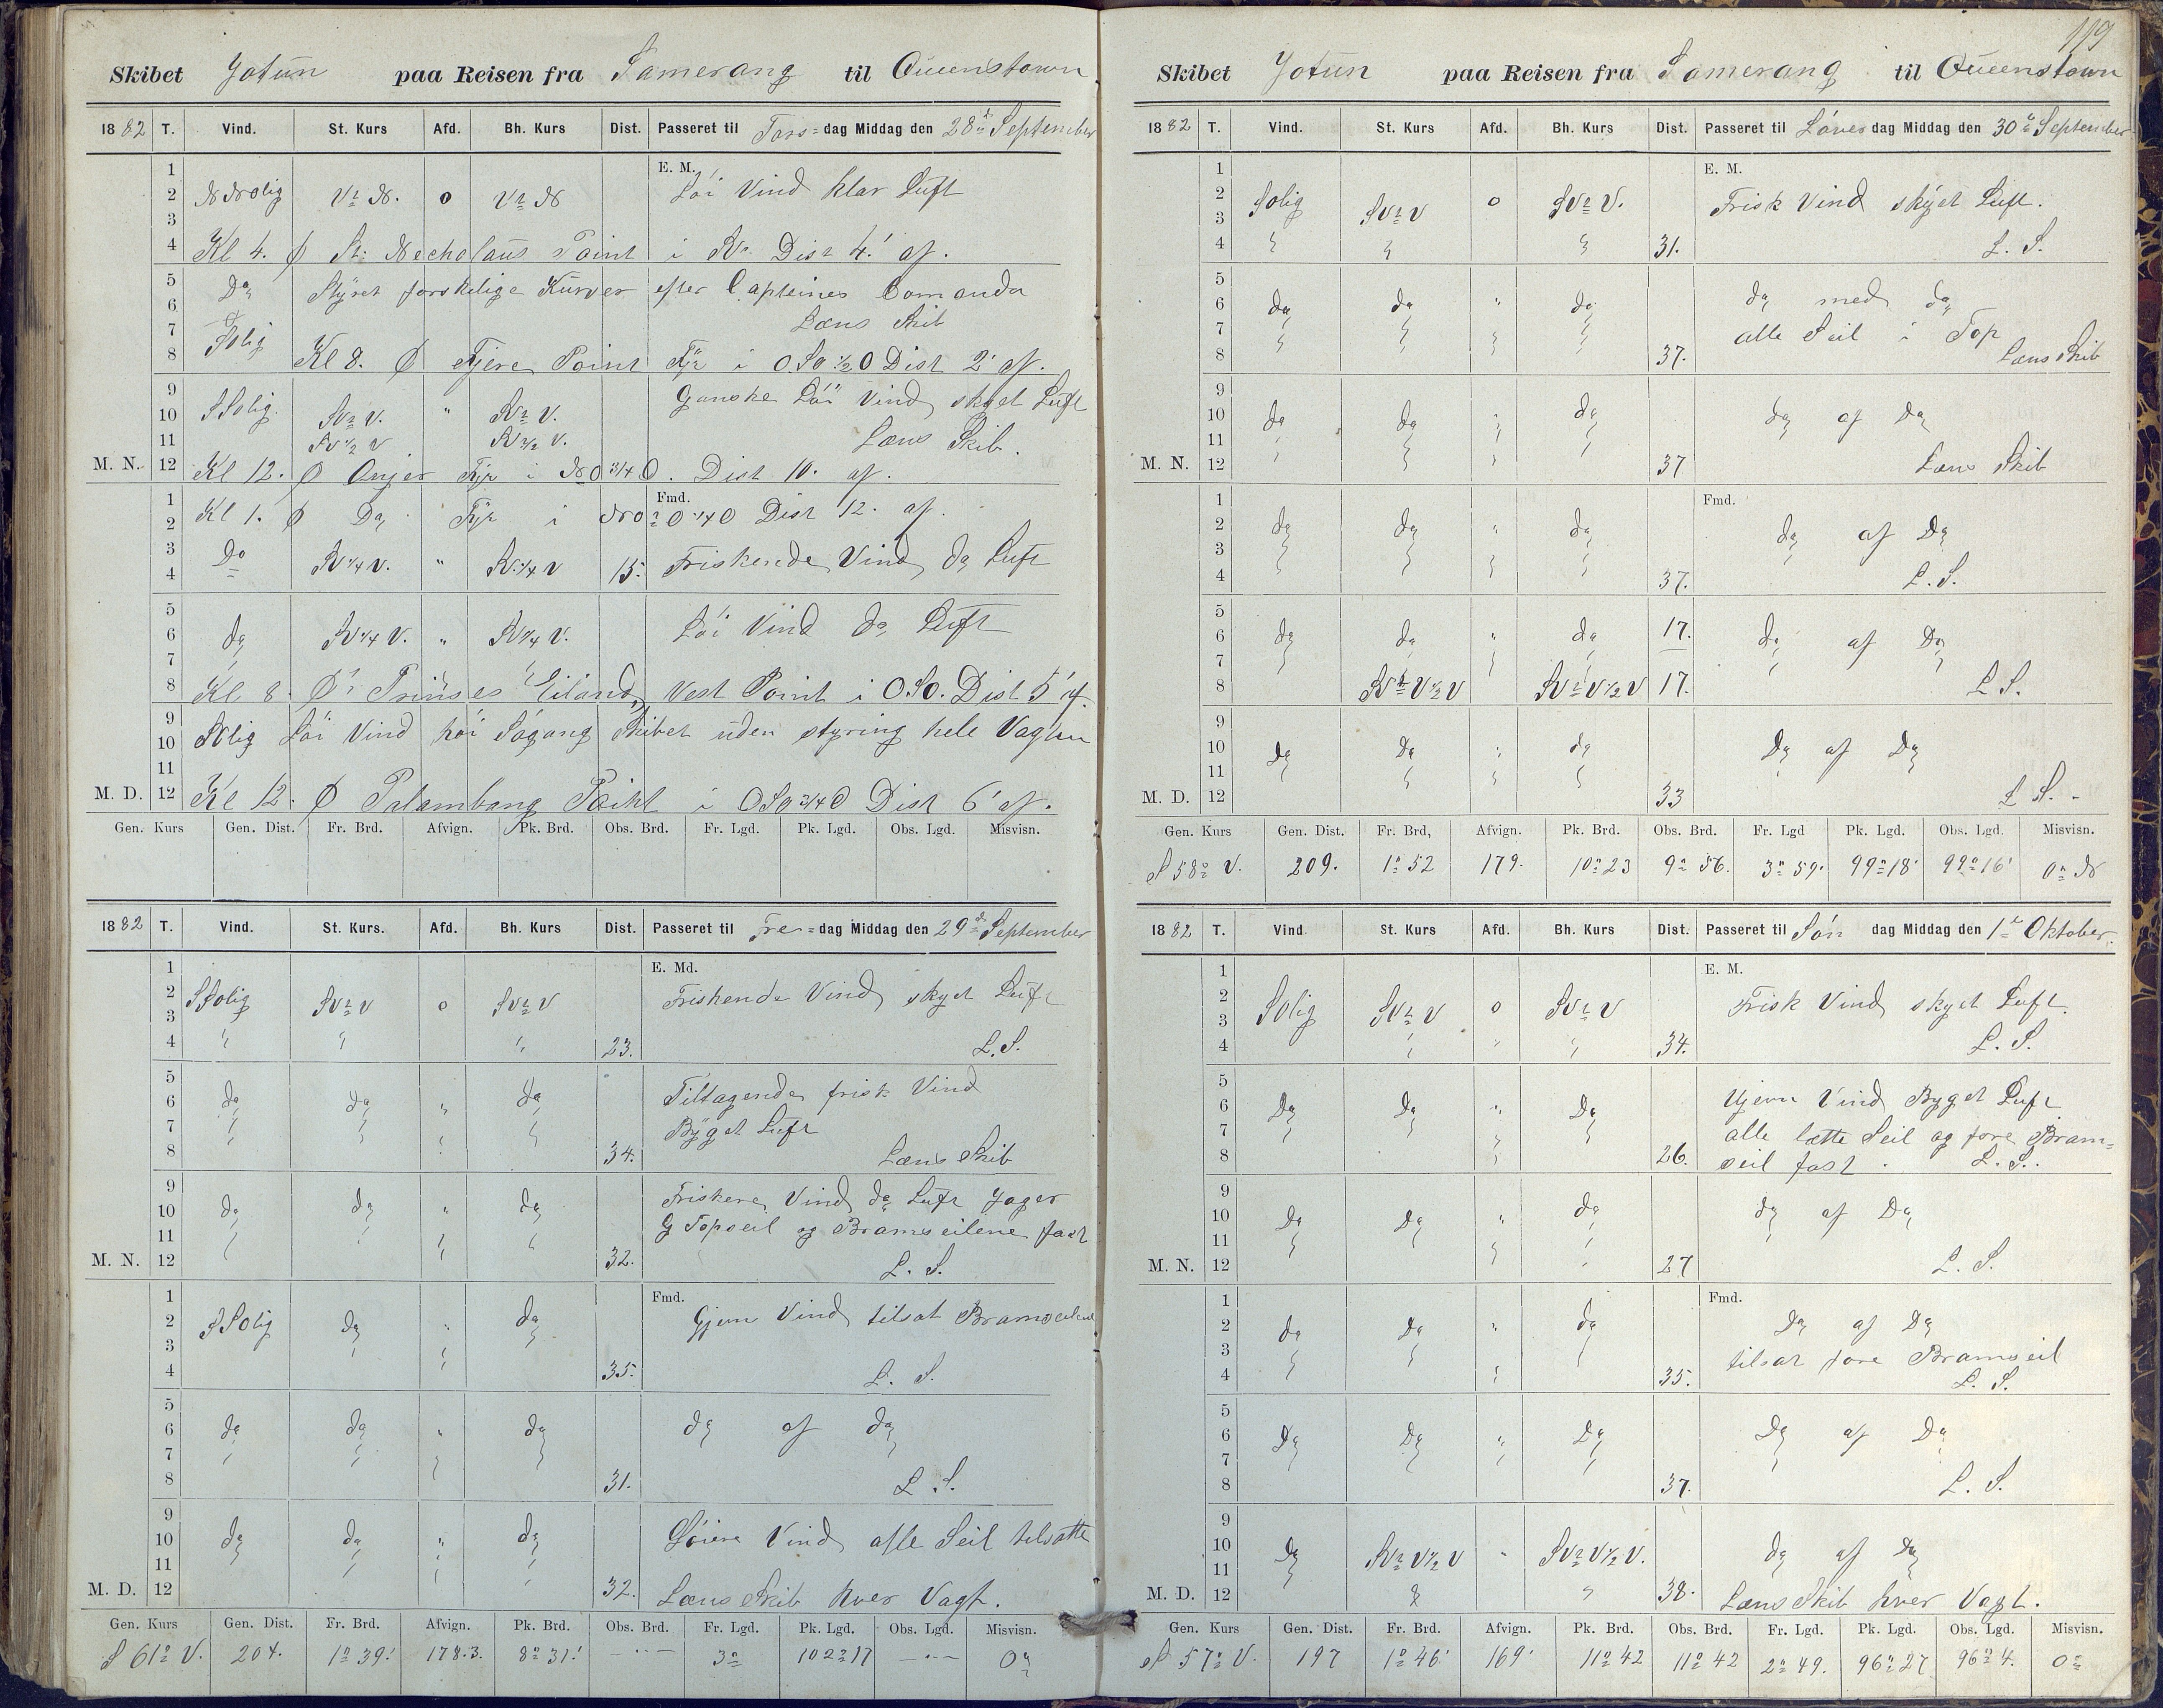 Skibet Jotun paa Reisen fra Samerang til Queenstown
1882 T. Vind. St. Kurs Afd. Bh. Kurs Dist. Passeret til Tors=dag Middag den 28de September
1
E. M.
2 NNolig VtN. 0 VtN Löi Vind klar Luft
3
4 Kl 4. St: Necholaus Point i SV. Dist 4.' af.
5 Do Styret forskelige Kurser efter Capteines Comando
6
7 Solig Læns Skib
8 Kl 8. Fjere Point Fyr i O.SO 1/2 O Dist 2' af.
9 Ganske Löi Vind skyet Luft
10 SSolig. SVtV. " SVtV.
11 SV 1/2 V SV 1/2 V. Læns Skib.
M. N. 12 Kl 12. Anjer Fyr i NO 3/4 O. Dist 10. af.
1 Fmd.
2 Kl 1. Do Fyr i NOtO 1/4 O Dist 12. af.
3 Do SV 1/4 V. " SV 1/4 V 15. Friskende Vind do Luft
4
5
6 do SV 1/4 V. " SV 1/4 V. Löi Vind do Luft
7
8 Kl 8. Prinses Eiland Vest Point i OSO. Dist 5' af.
9
10 SOlig Löi Vind höi Sögang Skibet uden styring hele Vagten
11
M. D. 12 Kl 12. Palambang Point i OSO 3/4 O Dist 6' af.
Gen. Kurs Gen. Dist. Fr. Brd. Afvign. Pk. Brd. Obs. Brd. Fr. Lgd. Pk. Lgd. Obs. Lgd. Misvisn.
1882 T. Vind. St. Kurs. Afd. Bh. Kurs Dist. Passeret til Fre=dag Middag den 29de September
1 E. Md.
2 SSolig SVtV 0 SVtV Friskende Vind skyet Luft
3
4 " " " 23. L. S.
5 Tiltagende frisk Vind
6 do do " do
7 Byget Luft
8 34. Læns Skib
9 Friskere Vind do Luft Jager
10 do do " do
11 G Topseil og Bramseilene fast
M. N. 12 32. L. S.
1 Fmd.
2 SSolig do " do Gjevn Vind tilsat Bramseilene
3
4 35. L. S.
5
6 do do " do do af do
7
8 31. L. S.
9
10 do do " do Löiere Vind alle Seil tilsatte
11
M. D. 12 32. Læns Skib hver Vagt.
Gen. Kurs Gen. Dist. Fr. Brd. Afvign. Pk. Brd. Obs. Brd. Fr. Lgd. Pk. Lgd. Obs. Lgd. Misvisn.
S 61° V. 204. 1° 39' 178.3. 8° 31' 3° 102° 17 0°
119
Skibet Jotun paa Reisen fra Samerang til Queenstown
1882 T. Vind. St. Kurs Afd. Bh. Kurs Dist. Passeret til Löverdag Middag den 30te September
1 E. M.
2 Solig SVtV 0 SVtV. Frisk Vind skyet Luft.
3
4 " " " 31. L. S.
5
6 do do " do do med do
7 alle Seil i Top
8 37. Læns Skib
9
10 do do " do do af do
11
M. N. 12 37 Læns Skib
1 Fmd.
2 do do " do do af Do
3
4 37. L. S.
5
6 do do " do 17. do af Do
7
8 SVtV 1/2 V SVtV 1/2 V 17. L S.
9
10 do Do " do Do af Do
11
M. D. 12 33 L S. -
Gen. Kurs Gen. Dist. Fr. Brd, Afvign. Pk. Brd. Obs. Brd. Fr. Lgd Pk. Lgd. Obs. Lgd. Misvisn.
S 58° V. 209. 1° 52 179. 10° 23 9° 56. 3° 59. 99° 18' 99° 16' 0° N
1882 T. Vind. St. Kurs Afd. Bh. Kurs Dist. Passeret til Sön dag Middag den 1te Oktober.
1 E. M.
2 Solig SVtV 0 SVtV Frisk Vind skyet Luft.
3
4 34. L. S.
5
6 Do Do " Do Ujevn Vind Byget Luft
7 alle lætte Seil og fore Bram=
8 26. seil fast. L. S.
9
10 Do Do " do do af Do
11
M. N. 12 27 L. S.
1 Fmd.
2 do Do " do Do af Do
3 tilsat fore Bramseil
4 35. L. S.
5
6 Do Do " Do Do af Do
7
8 37. L. S.
9
10 Do SVtV 1/2 V " SVtV 1/2 V. do af do
11
M. D. 12 38. Læns Skib hver Vagt.
Gen. Kurs Gen. Dist. Fr. Brd. Afvign. Pk. Brd. Obs. Brd. Fr. Lgd. Pk. Lgd. Obs. Lgd. Misvisn.
S 57° V. 197 1° 46' 169' 11° 42 11° 42 2° 49. 96° 27 96° 4. 0°